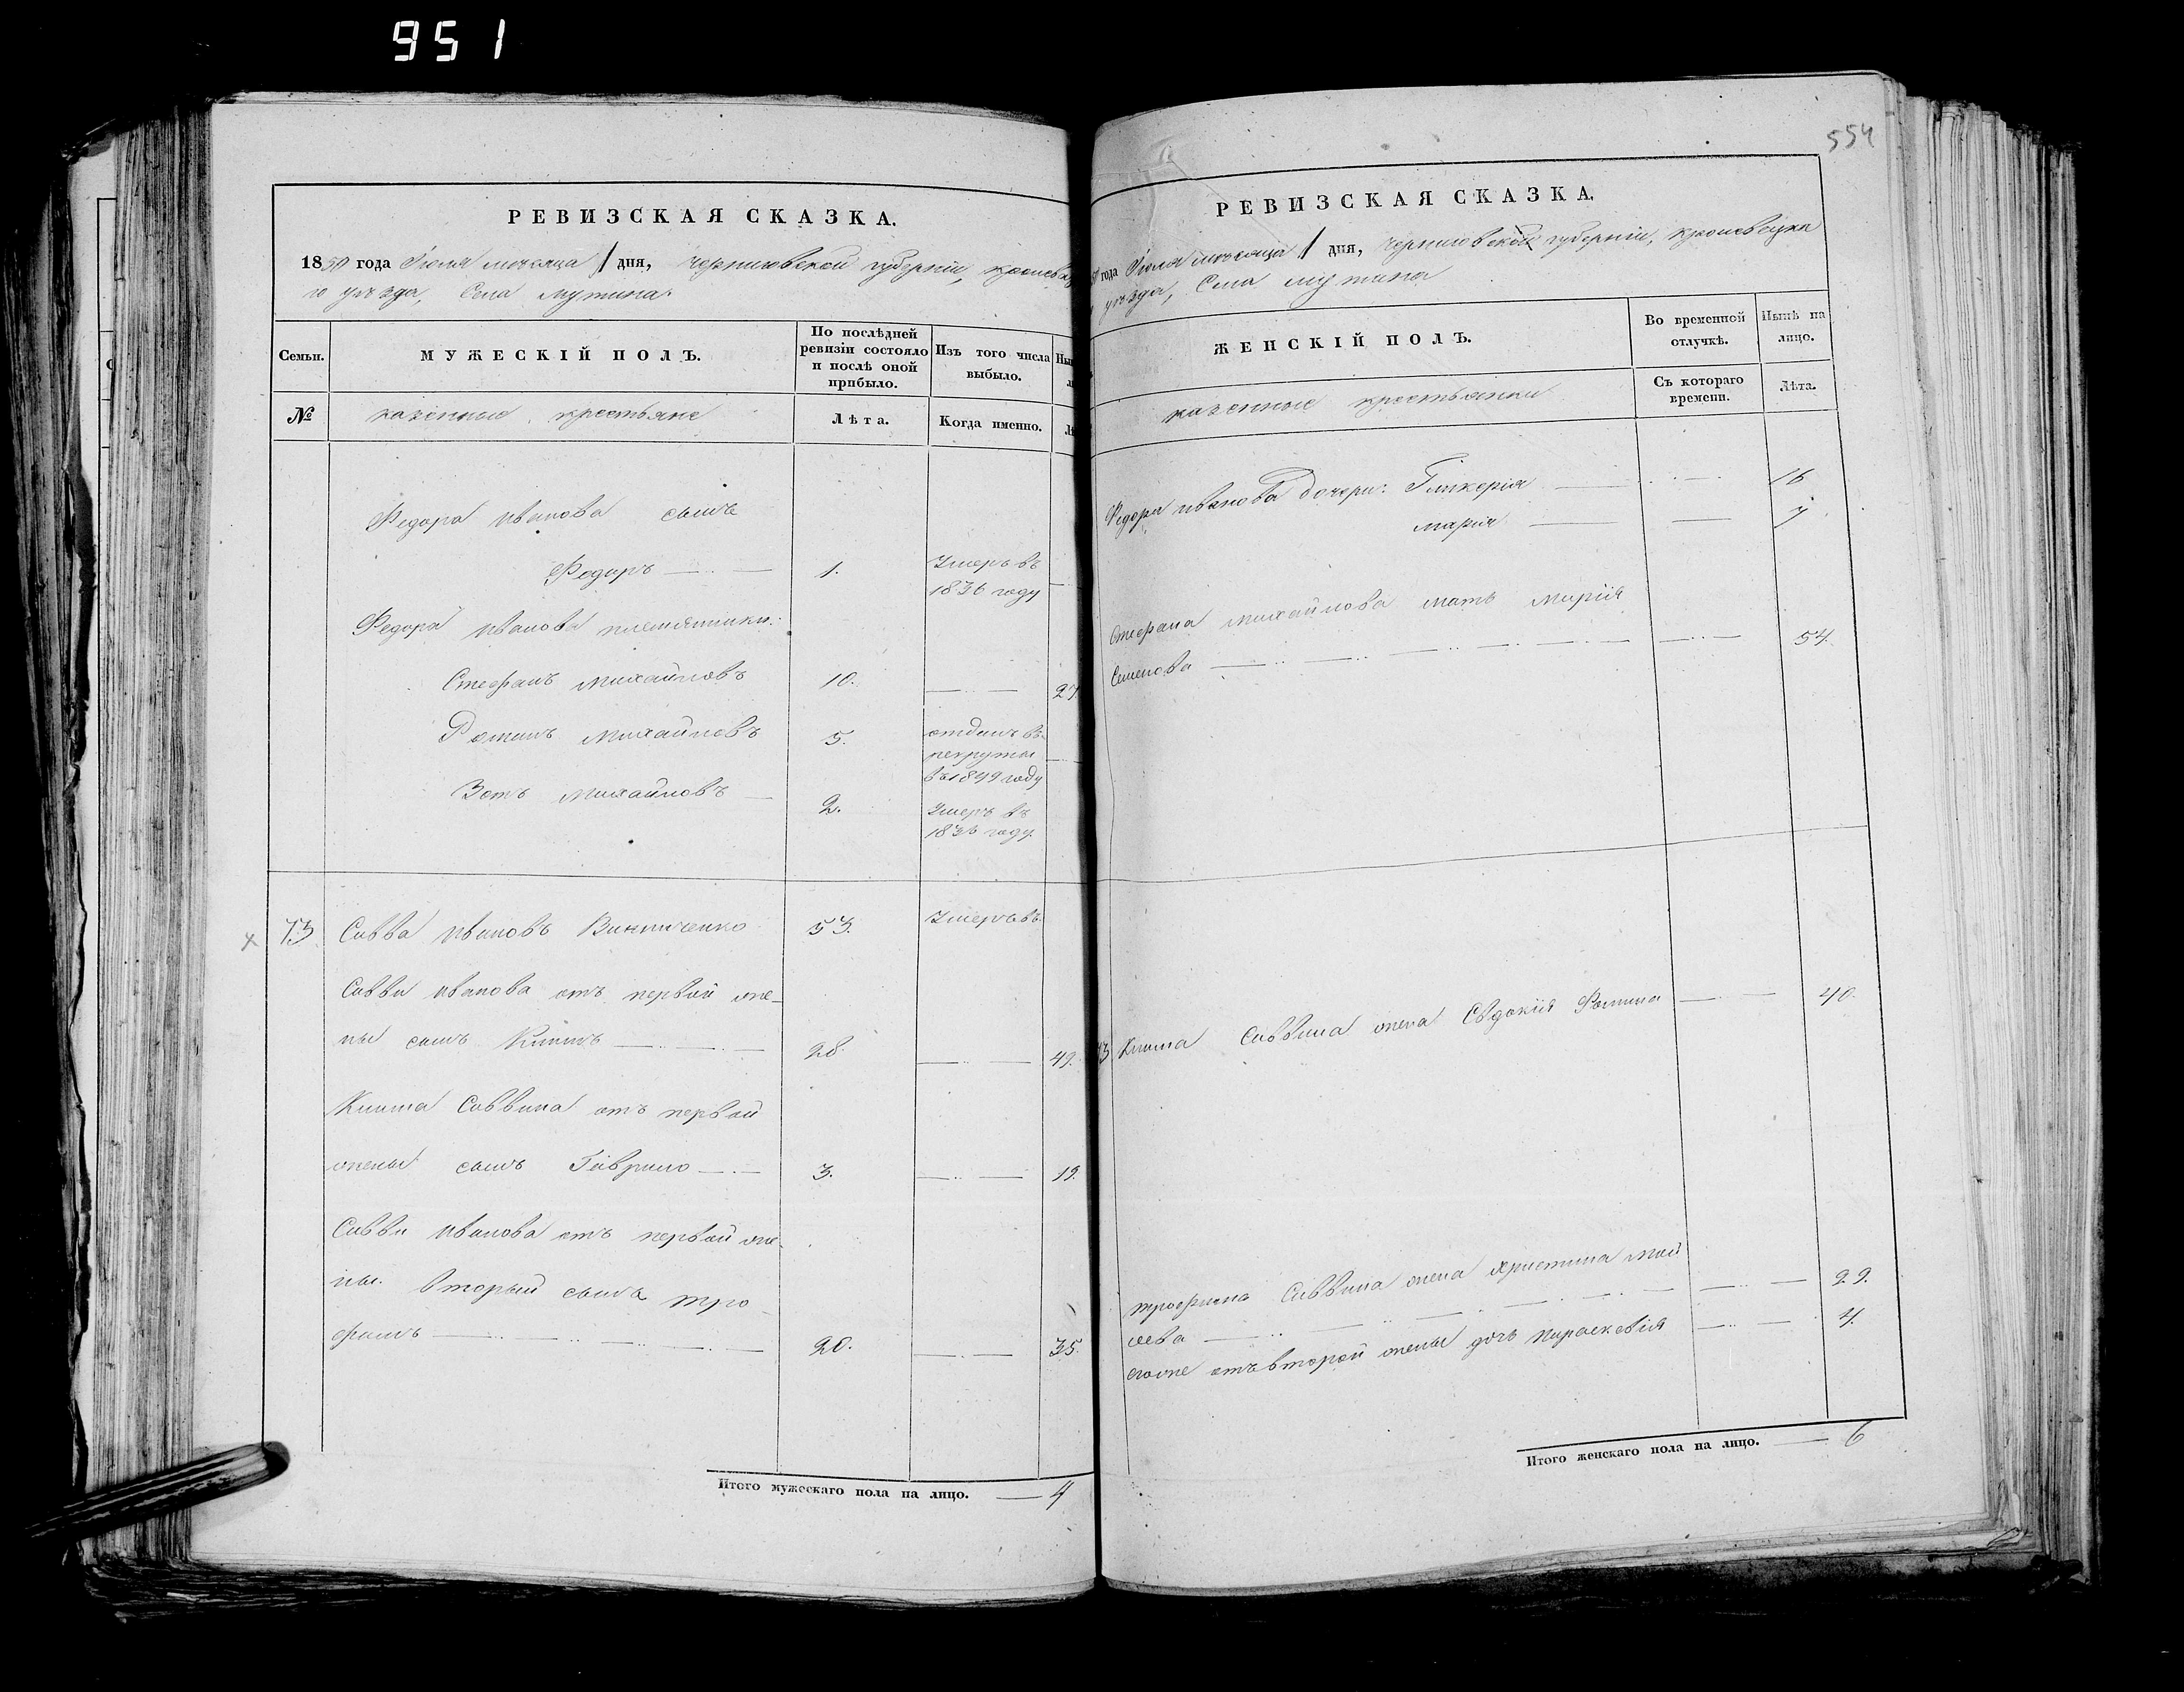 951
РЕВИЗСКАЯ СКАЗКА.
1850 года Июля месяца 1 дня, Черниговской губернии,
го уезда, Села Мутина.
Семьи.
МУЖЕСКІЙ ПОЛЪ.
По послѣдней ревизіи состояло и послѣ оной прибыло.
Изъ того числа выбыло.
№
казенные крестьяне
Лѣта.
Когда именно.
Федора Иванова сынъ
Федоръ 1. Умеръ въ
1836 году
Федора Иванова племянники:
Стефанъ Михайловъ 10. 27.
Романъ Михайловъ 5. отданъ въ
рекруты
въ 1849 году
Зотъ Михайловъ 2. Умеръ въ
1836 году
73 Савва Ивановъ Винниченко 53. Умеръ въ
Саввы Иванова отъ первой же-
ны сынъ Климъ 28. 42.
Клима Саввина отъ первой
жены сынъ Гаврило 3. 19.
Саввы Иванова отъ первой же-
ны вторый сынъ Тро-
фимъ 20. 35.
Итого мужескаго пола на лицо. 4
554
РЕВИЗСКАЯ СКАЗКА.
года Июля месяца 1 дня, Черниговской губерніи, Кролевецка
уезда, Села Мутина
ЖЕНСКІЙ ПОЛЪ.
Во временной отлучкѣ.
Нынѣ на лицо.
казенные крестьянки
Съ котораго времени.
Лѣта.
Федора Иванова дочери: Гликерія 16
Марія 7
Стефана Михайлова мать Марія
Семенова 54.
Клима Саввина жена Евдокія Фомина 40.
Трофима Саввина жена Христина Мой
сеева 29.
его же отъ второй жены дочь Параскевія 4.
Итого женскаго пола на лицо. 6